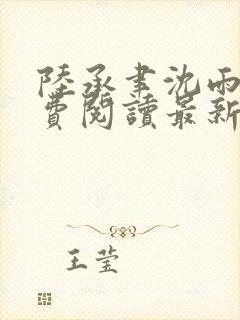 陸承聿沈雨
費閱讀最新
王莹